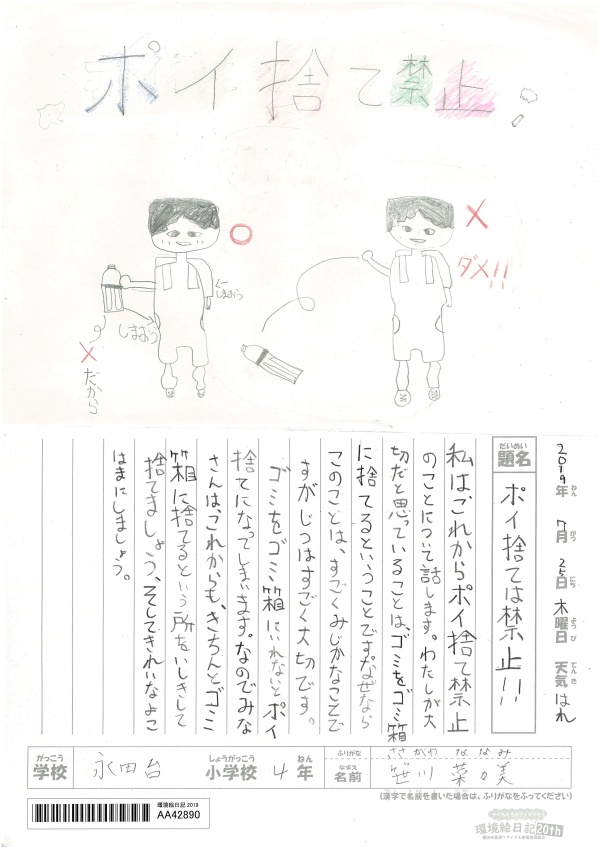 ポイ捨て禁止
○
しまおう
しまおう
×
だから
×
ダメ!!
2019年 7月 25日 木曜日 天気 はれ
ねん がつ にち ようび てんき
だいめい
題名
ポイ捨ては禁止!!
私はこれからポイ捨て禁止
のことについて話します。わたしが大
切だと思っていることは、ゴミをゴミ箱
に捨てるということです。なぜなら
このことは、すごくみじかなことで
すがじつはすごく大切です。
ゴミをゴミ箱にいれないとポイ
捨てになってしまいます。なのでみな
さんは、これからも、きちんとゴミ
箱に捨てるという所をいしきして
捨てましょう、そしてきれいなよこ
はまにしましょう。
がっこう しょうがっこう ねん
学校 永田台 小学校 4年
ふりがな ささがわ ななみ
なまえ
名前 笹川 菜々美
(漢字で名前を書いた場合は、ふりがなをふってください)
環境絵日記 2019
AA42890
環境絵日記 20th